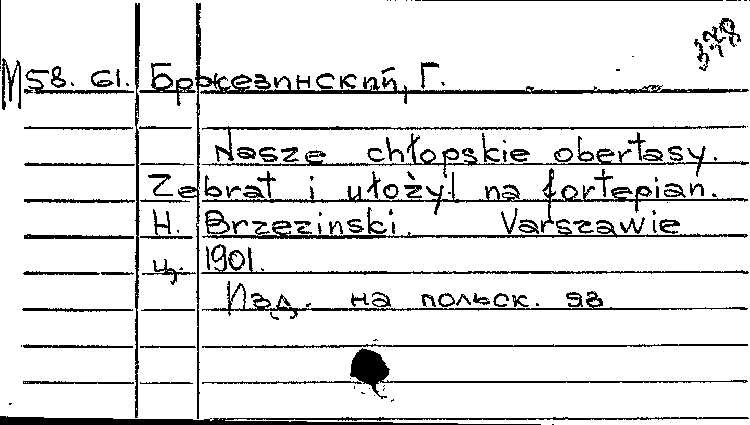 378
M 58. 61. Бржезинский, Г.
Nasze chłopskie obertasy.
Zebrat i ułożył na fortepian.
H. Brzezinski. Varszawie
ц. 1901.
Изд. на польск. яз